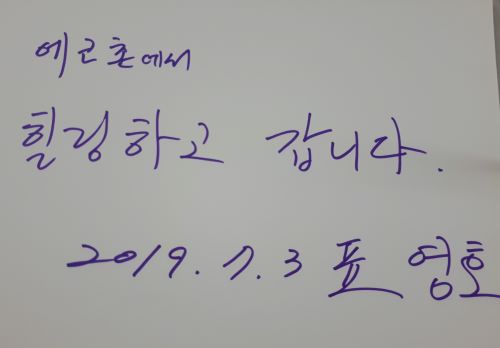 에코촌에서
힐링하고 갑니다.
2019. 7. 3 표 영호